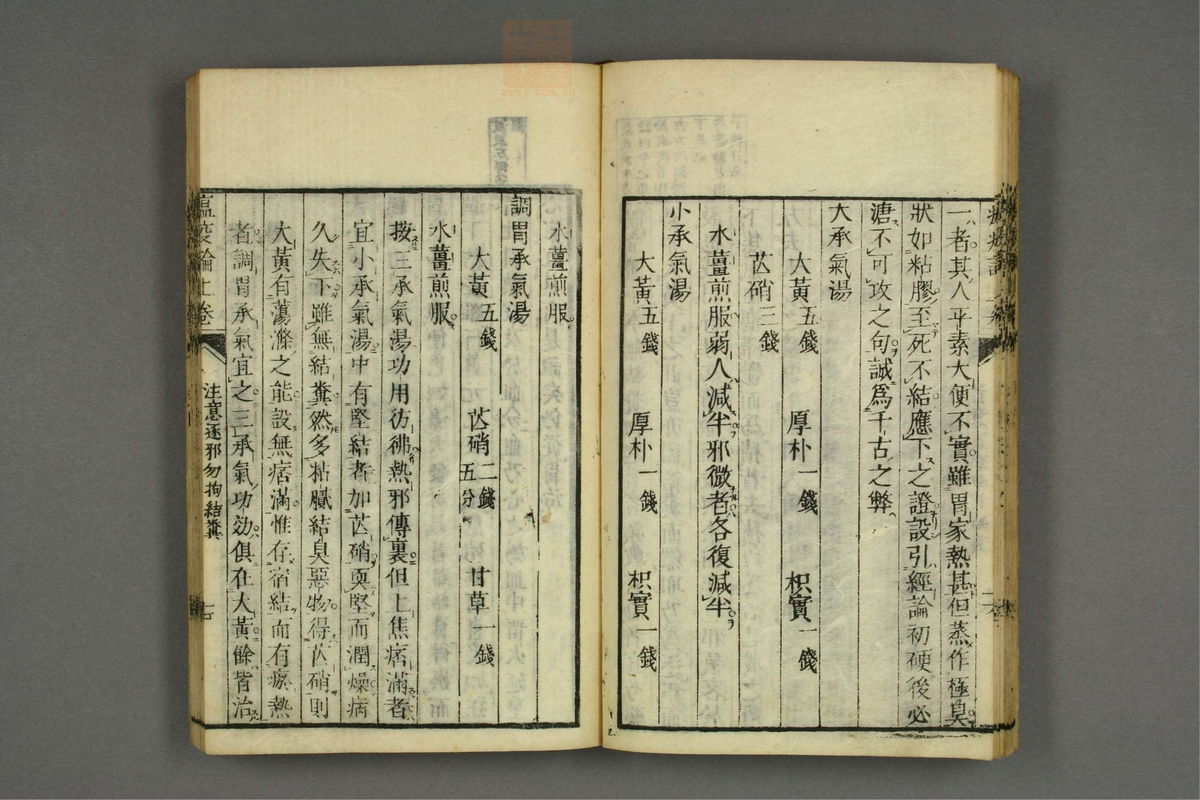 一者其人平素大便不實雖胃家熱甚但蒸作極臭
狀如粘膠至死不結應下之證設引經論初硬後必
溏不可攻之句誠為千古之弊
大承氣湯
大黃五錢 厚朴一錢 枳實一錢
芒硝三錢
水薑煎服弱人減半邪微者各復減半
小承氣湯
大黃五錢 厚朴一錢 枳實一錢
水薑煎服
調胃承氣湯
大黃五錢 芒硝二錢五分 甘草一錢
水薑煎服
按三承氣湯功用彷彿熱邪傳裏但上焦痞滿者
宜小承氣湯中有堅結者加芒硝耎堅而潤燥病
久失下雖無結糞然多粘膩結臭惡物得芒硝則
大黃有蕩滌之能設無痞滿惟存宿結而有瘀熱
者調胃承氣宜之三承氣功効俱在大黃餘皆治
瘟疫論上卷 注意逐邪勿拘結糞